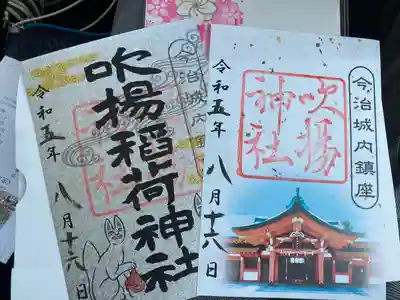 今治城内鎮座
吹揚稲荷神社
令和五年
八月十六日
今治城内鎮座
吹揚
神社
令和五年
八月十六日